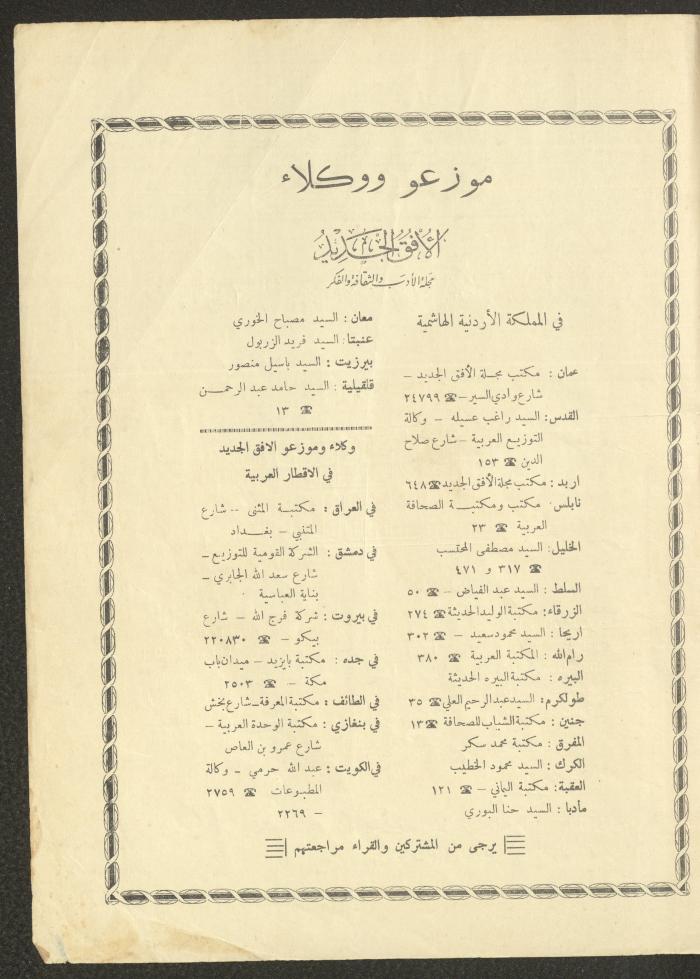 موزعو ووكلاء
الأفق الجديد
مجلة الأدب والثقافة والفكر
في المملكة الأردنية الهاشمية
عمان : مكتب مجلة الأفق الجديد –
شارع وادي السير – ☎ ٢٤٧٩٩
القدس : السيد راغب عسيله – وكالة
التوزيع العربية – شارع صلاح
الدين ☎ ١٥٣
اربد : مكتب مجلة الأفق الجديد ☎ ٦٤٨
نابلس : مكتب ومكتبة الصحافة
العربية ☎ ٢٣
الخليل : السيد مصطفى المحتسب
☎ ٣١٧ و ٤٧١
السلط : السيد عبد الفياض – ☎ ٥٠
الزرقاء : مكتبة الوليد الحديثة ☎ ٢٧٤
اريحا : السيد محمود سعيد – ☎ ٣٠٢
رام الله : المكتبة العربية ☎ ٣٨٠
البيره : مكتبة البيره الحديثة
طولكرم : السيد عبد الرحيم العلي ☎ ٣٥
جنين : مكتبة الشباب للصحافة ☎ ١٣
المفرق : مكتبة محمد سكر
الكرك : السيد محمود الخطيب
العقبة : مكتبة اليماني – ☎ ١٢١
مأدبا : السيد حنا البوري
معان : السيد مصباح الخوري
عنبتا : السيد فريد الزربول
بيرزيت : السيد باسيل منصور
قلقيلية : السيد حامد عبد الرحمن
☎ ١٣
وكلاء وموزعو الافق الجديد
في الاقطار العربية
في العراق : مكتبة المثنى -- شارع
المتنبي – بغداد
في دمشق : الشركة القومية للتوزيع –
شارع سعد الله الجابري –
بناية العباسية
في بيروت : شركة فرج الله – شارع
بيكو – ☎ ٢٢٠٨٣٠
في جده : مكتبة بايزيد – ميدان باب
مكة – ☎ ٢٥٠٣
في الطائف : مكتبة المعرفة – شارع بخش
في بنغازي : مكتبة الوحدة العربية –
شارع عمرو بن العاص
في الكويت : عبد الله حرمي – وكالة
المطبوعات ☎ ٢٧٥٩
– ٢٢٦٩
يرجى من المشتركين والقراء مراجعتهم